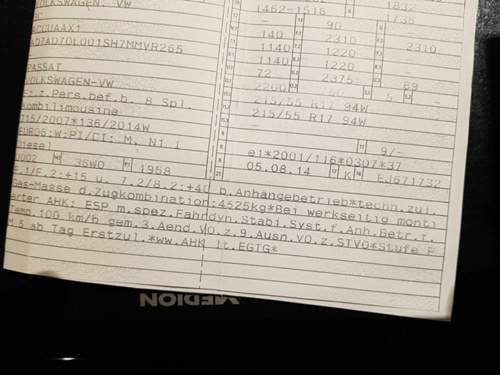 VOLKSWAGEN, VW
1462-1516
1832
1735
90
ACCUAAX1
140
2310
2310
AD7AD70L001SH7MMVR265
1140
1220
1140
1220
PASSAT
72
2375
69
VOLKSWAGEN-VW
2200
750
5
Fz.z.Pers.bef.b. 8 Spl.
215/55 R17 94W
Kombilimousine
215/55 R17 94W
715/2007*136/2014W
EURO6;W;PI/CI; M, N1 I
9/-
Diesel
e1*2001/116*0307*37
0002
36W0
1968
05.08.14
K
EJ671732
F.1/F.2:+15 u. 7.2/8.2:+40 b.Anhängebetrieb*techn.zul.
Ges-Masse d.Zugkombination:4525kg*Bei werkseitig monti
erter AHK: ESP m.spez.Fahrdyn.Stabi.Syst.f.Anh.Betr.f.
Temp.100 km/h gem.3.Aend.VO.z.9.Ausn.VO.z.STVO*Stufe F
ab Tag Erstzul.*ww.AHK lt.EGTG*
MEDION